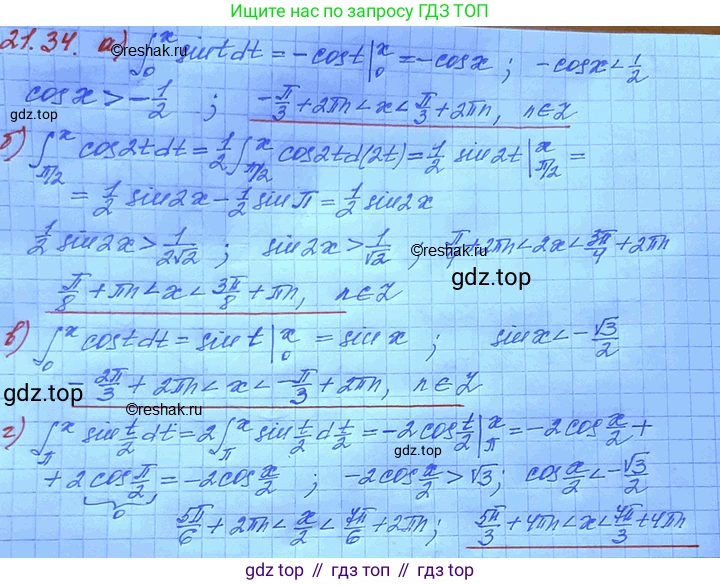 Ищите нас по запросу ГДЗ ТОП
21.34. а) ∫₀ˣ sin t dt = -cos t |₀ˣ = -cos x ; -cos x < 1/2
©reshak.ru
cos x > -1/2 ; -π/3 + 2πn < x < π/3 + 2πn, n∈Z
б) ∫_{π/2}^x cos2t dt = 1/2 ∫_{π/2}^x cos2t d(2t) = 1/2 sin2t |_{π/2}^x =
= 1/2 sin2x - 1/2 sin π = 1/2 sin2x
1/2 sin2x > 1/(2√2) ; sin2x > 1/√2 ; π/4 + 2πn < 2x < 3π/4 + 2πn
gdz.top
π/8 + πn < x < 3π/8 + πn, n∈Z
в) ∫₀ˣ cos t dt = sin t |₀ˣ = sin x ; sin x < -√3/2
-2π/3 + 2πn < x < -π/3 + 2πn, n∈Z
gdz.top
©reshak.ru
г) ∫_π^x sin t/2 dt = 2 ∫_π^x sin t/2 d t/2 = -2cos t/2 |_π^x = -2cos x/2 +
+ 2cos π/2 = -2cos x/2 ; -2cos x/2 > √3 ; cos x/2 < -√3/2
0
gdz.top
5π/6 + 2πn < x/2 < 7π/6 + 2πn ; 5π/3 + 4πn < x < 7π/3 + 4πn
gdz.top // gdz.top // gdz.top